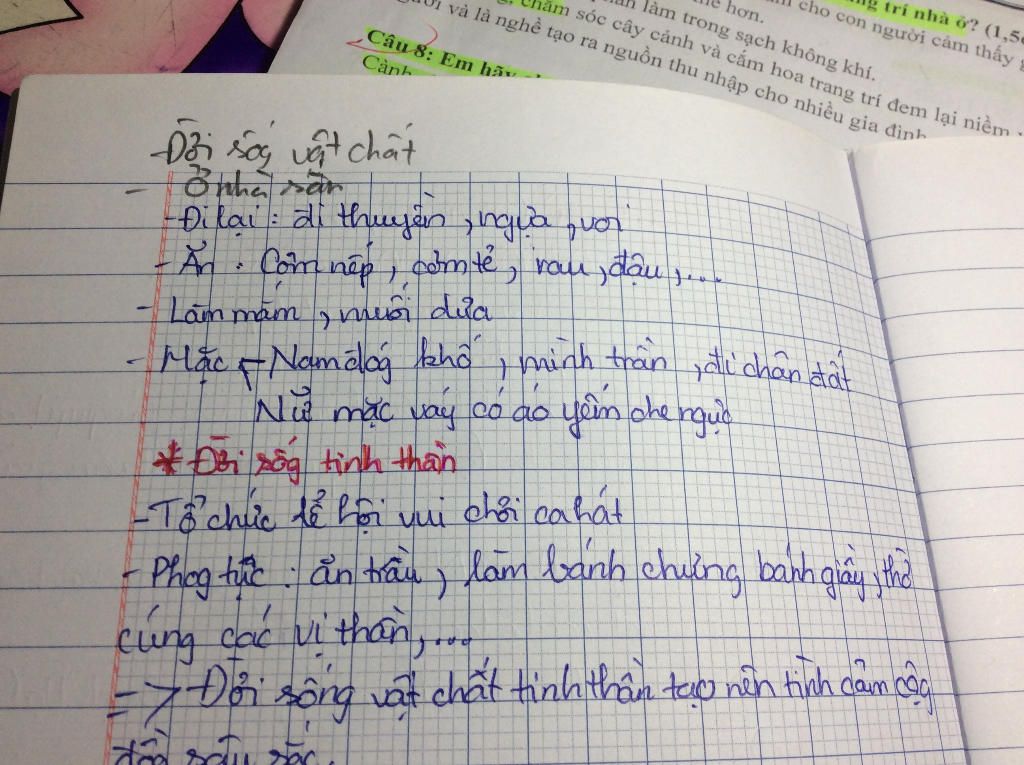 ng trí nhà ở? (1,5đ
cho con người cảm thấy g
làm trong sạch không khí.
chăm sóc cây cảnh và cắm hoa trang trí đem lại niềm
và là nghề tạo ra nguồn thu nhập cho nhiều gia đình
Câu 8: Em hãy
Cành
-Đời sốg vật chất
- Ở nhà sàn
-Đi lại : đi thuyền , ngựa , voi
- Ăn : Cơm nếp, cơm tẻ, rau, đậu, ...
- Làm mắm , muối dưa
- Mặc - Nam đóg khố , mình trần , đi chân đất
Nữ mặc váy có áo yếm che ngực
* Đời sốg tinh thần
-Tổ chức lễ hội vui chơi ca hát
- Phog tục : ăn trầu, làm bánh chưng bánh giầy, thờ
cúng các vị thần, ...
-> Đời sống vật chất tinh thần tạo nên tình cảm cộg
đồg sâu sắc.